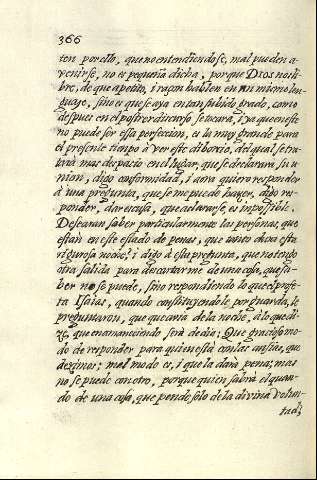 366
ten por ello, que no entendiendose, mal pueden a-
venirse, no es pequeña dicha, porque Dios nos li-
bre, de que apetito, i raçon hablen en un mismo len-
guaje, sino es que se aya en tan subido grado, como
despues en el postrer discurso se tocará, i ya que en este
no puede ser essa perfeccion, es la muy grande para
el presente tiempo à ver este divorcio, del qual, se tra-
tará mas de spacio en el lugar, que se declarará su u-
nion, digo conformidad, i aora quiero responder
à una pregunta, que se me puede hazer, digo res-
ponder, dar escusa, que aclararse, es impossible.
Desearan saber particularmente las personas, que
están en este estado de penas, que tanto dura esta
rigurosa noche? i digo á essa pregunta, que no tengo
otra salida para descartarme de una cosa, que sa-
ber no se puede, sino respondiendo lo que el profe-
ta Isaias, quando constituyendole por guarda, le
preguntaron, que que avia de la noche, à lo que di-
ze, que en amaneciendo será de dia; Que gracioso mo-
do de responder para quien está con las ansias, que
deximos; mal modo es, i que la dará pena; mas
no se puede con otro, porque quien sabrá el quan-
do de una cosa, que pende solo de la divina volun-
tad;